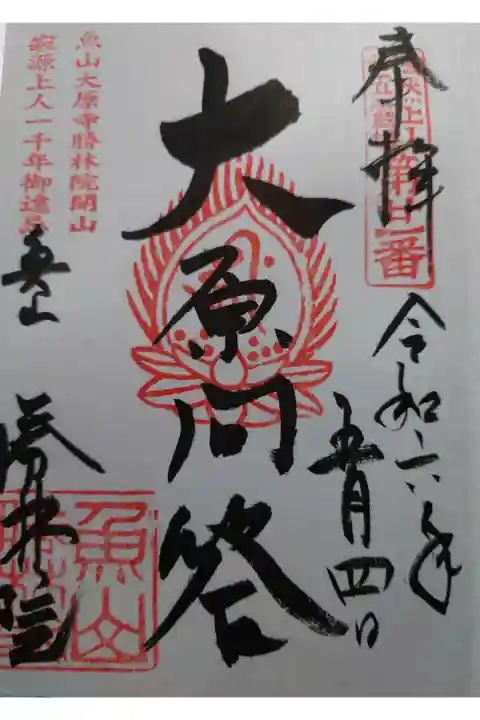 奉拝
第廿一番
令和六年
五月四日
大原問答
魚山大原寺勝林院開山
寂源上人一千年御遠忌
魚山
勝林院
魚山